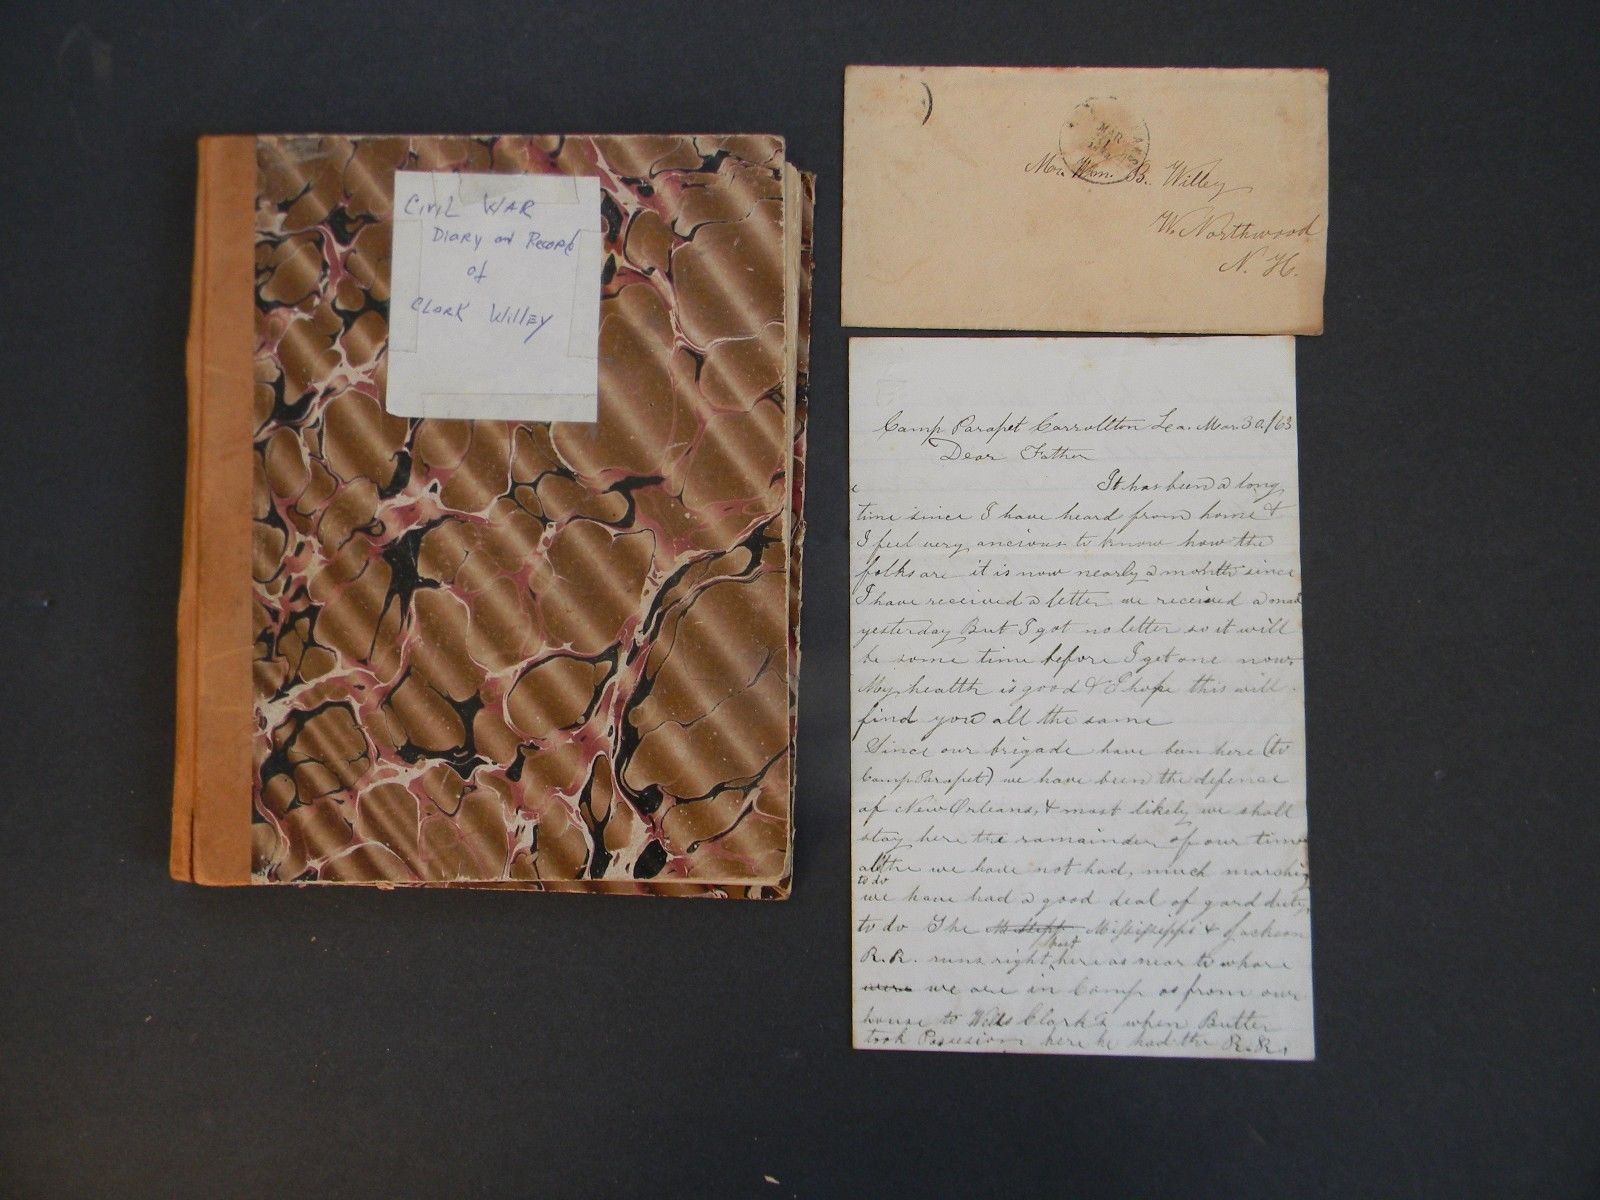 Civil War
Diary or Record
of
Clark Willey
MAR
31
Mr. Wm. B. Willey
W. Northwood
N. H.
Camp Parapet Carrollton La. Mar. 30. /63
Dear Father
It has been a long
time since I have heard from home &
I feel very ancious to know how the
folks are it is now nearly a month since
I have received a letter we received a mail
yesterday But I got no letter so it will
be some time before I get one now.
My health is good & I hope this will
find you all the same
Since our brigade have been here (to
Camp Parapet) we have been the defence
of New Orleans, & most likely we shall
stay here the remainder of our time
altho we have not had much marching
to do
we have had a good deal of gard duty
to do The Mississippi & Jackson
R.R. runs right here as near to whare
but
were we are in Camp as from our
house to Wells Clark & when Butler
took Possesion here he had the R.R.